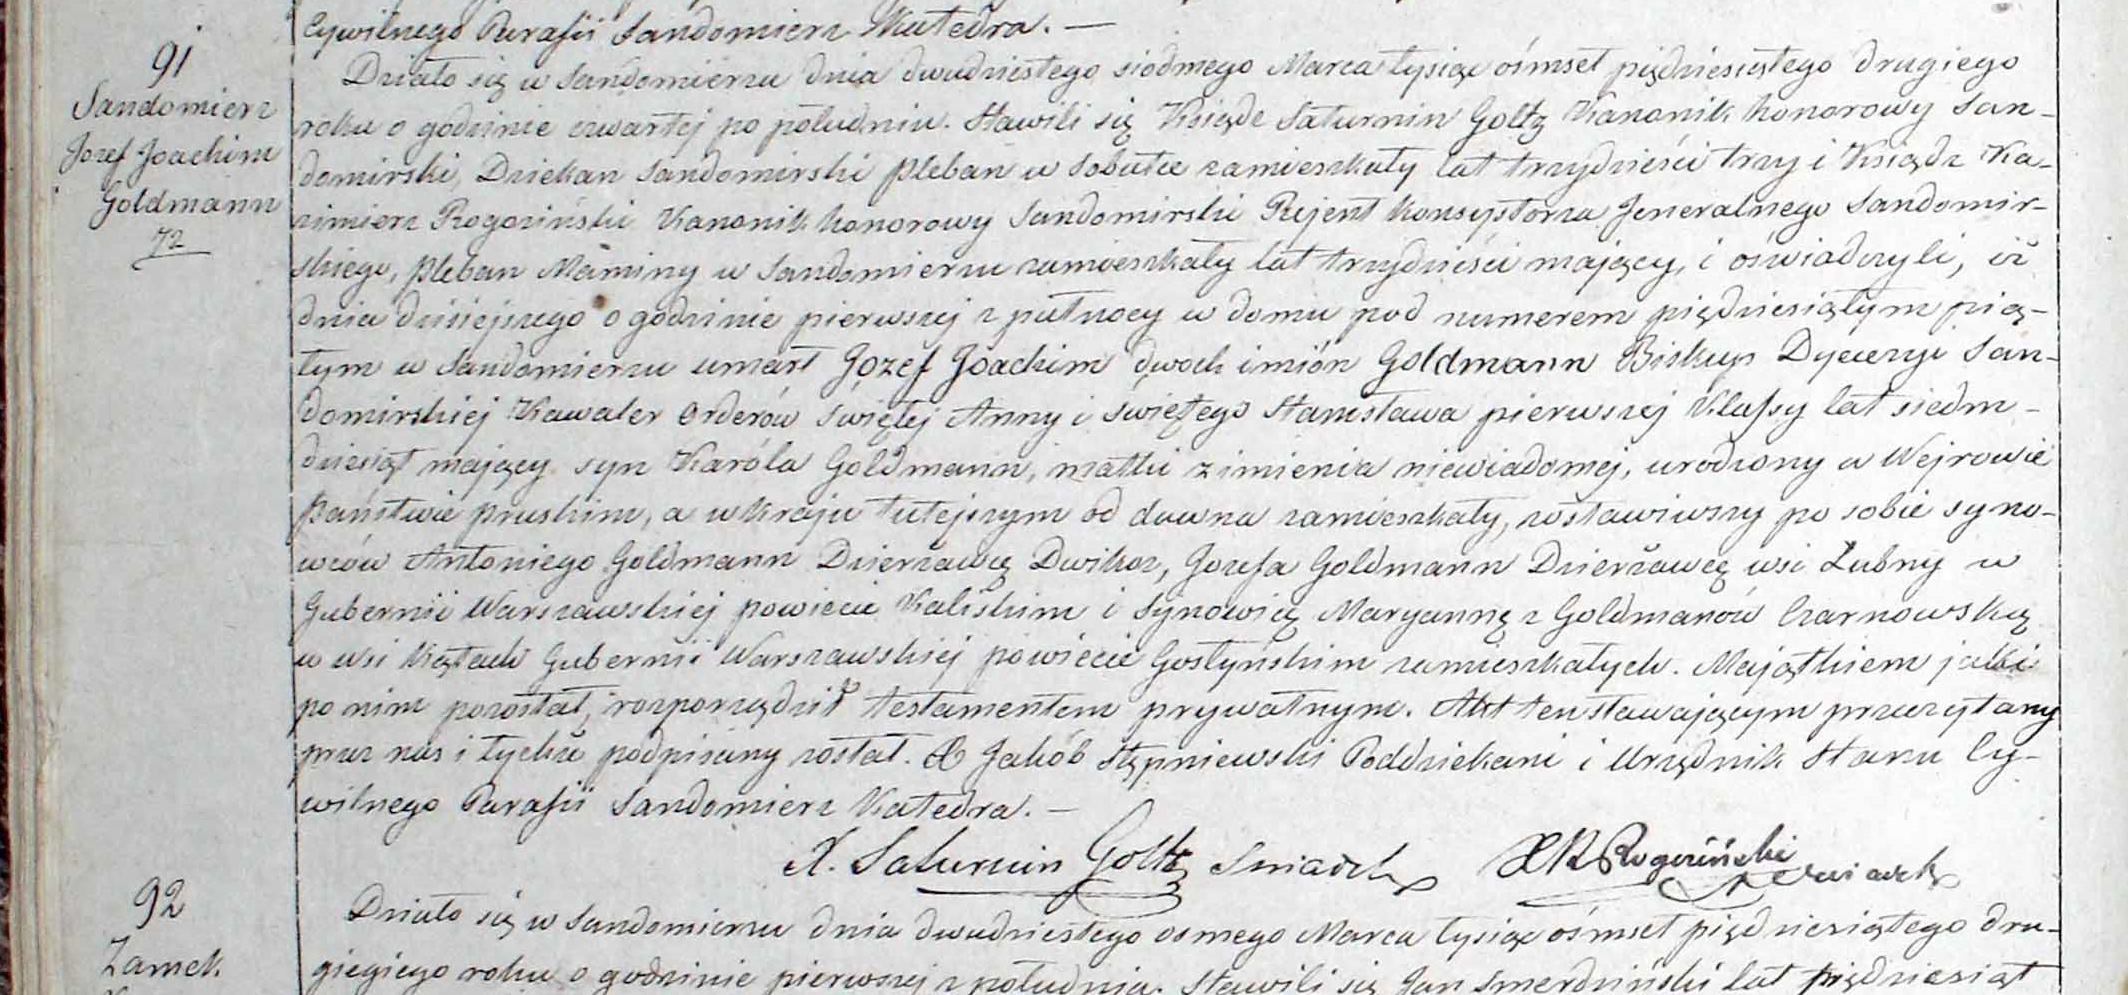 cywilnego Parafii Sandomierz Katedra. —
91
Sandomierz
Jozef Joachim
Goldmann
72
Działo się w Sandomierzu dnia dwudziestego siodmego Marca tysiąc ośmset pięдziesiątego drugiego
roku o godzinie czwartej po południu. Stawili się Ksiądz Saturnin Goltz Kanonik honorowy San-
domirski, Dziekan Sandomirski pleban w Sobutce zamieszkały lat trzydzieści trzy i Ksiądz Ka-
zimierz Rogoziński Kanonik honorowy Sandomirski Rejent Konsystorza Jeneralnego Sandomir-
skiego, pleban Maminy w Sandomierzu zamieszkały lat trzydzieści mający, i oświadczyli, iż
dnia dzisiejszego o godzinie pierwszej z pułnocy w domu pod numerem pięдziesiątym pią-
tym w Sandomierzu umarł Jozef Joachim dwoch imión Goldmann Biskup Dyecezyi San-
domirskiej Kawaler Orderów Swiętej Anny i Swiętego Stanisława pierwszej Klassy lat siedm-
dziesiąt mający syn Karóla Goldmann, matki z imienia niewiadomej, urodzony w Wejrowie
Państwie pruskim, a w kraju tutejszym od dawna zamieszkały, zostawiwszy po sobie syno-
wców Antoniego Goldmann Dzierżawcę Dwikoz, Jozefa Goldmann Dzierżawcę wsi Łubny w
Gubernii Warszawskiej powiecie Kaliskim i Synowicę Maryannę z Goldmanów Czarnowską
w wsi Kątach Gubernii Warszawskiej powiecie Gostyńskim zamieszkałych. Majątkiem jaki
po nim pozostał, rozporządził testamentem prywatnym. Akt ten stawającym przeczytany
przez nas i tychże podpisany został. X Jakób Stępniewski Poddziekani i Urzędnik Stanu Cy-
wilnego Parafii Sandomierz Katedra. —
X. Saturnin Goltz Swiadek XK Rogoziński Swiadek
92
Zamek
Działo się w Sandomierzu dnia dwudziestego osmego Marca tysiąc ośmset pięдziesiątego dru-
giegiego roku o godzinie pierwszej z południa. Stawili się Jan Smerdziński lat pięдziesiąt